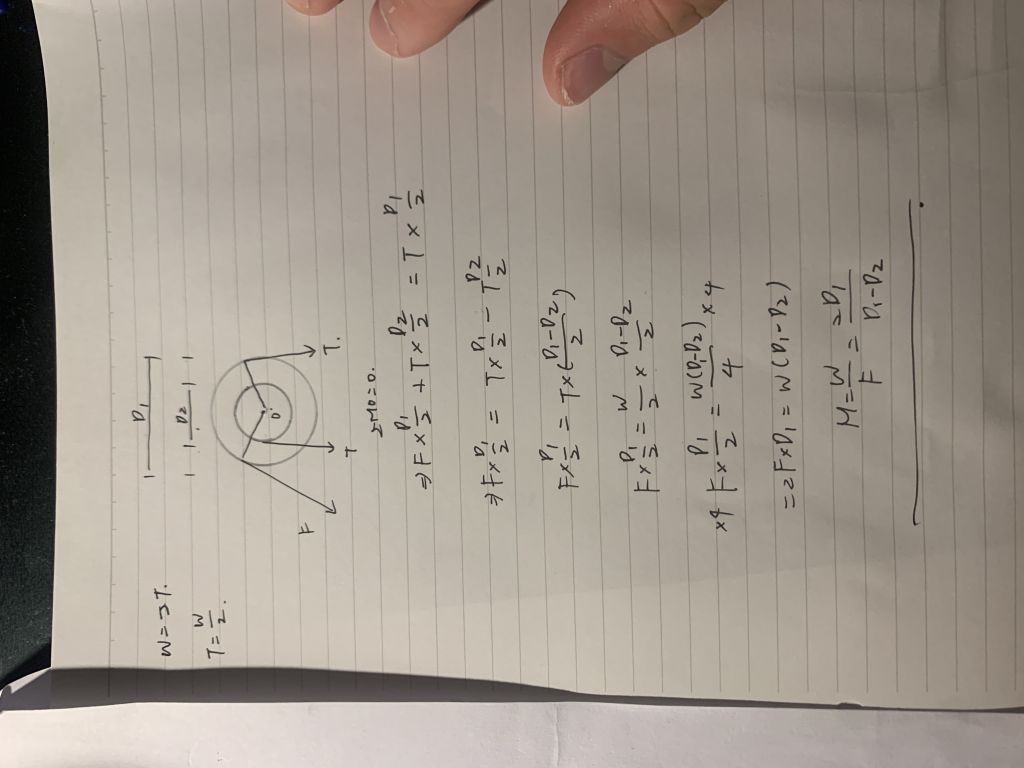 W = 2T.
T = W/2.
D1
D2
O
F
T
T.
ΣMO = 0.
⇒ F × D1/2 + T × D2/2 = T × D1/2
⇒ F × D1/2 = T × D1/2 - T D2/2
F × D1/2 = T × (D1-D2/2)
F × D1/2 = W/2 × D1-D2/2
×4 F × D1/2 = W(D1-D2)/4 ×4
= 2F × D1 = W(D1-D2)
M = W/F = 2D1/D1-D2